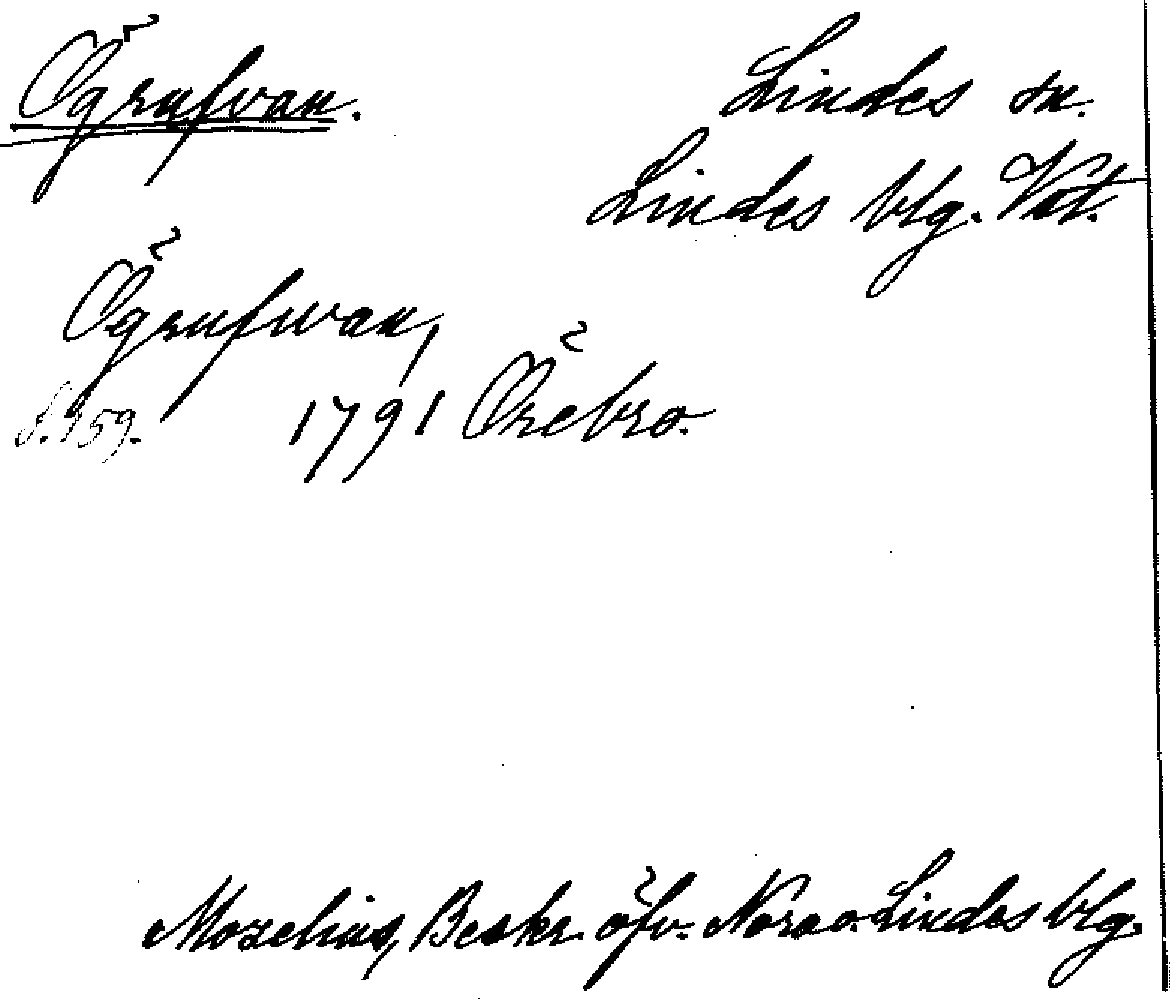 Ögrufvan.
Lindes sn.
Lindes blg. Vstm.
Ögrufwan,
s. 159. 1791 Örebro.
Mozelius, Beskr. öfv. Nora o. Lindes blg.